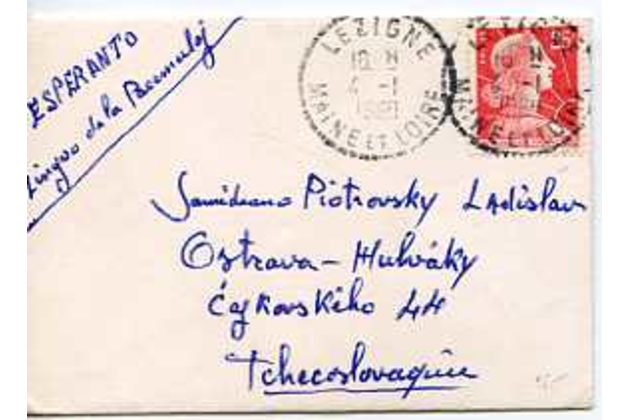 ESPERANTO
Lingvo de la Pacemuloj
LEZIGNE
10 H
4 -1
MAINE ET LOIRE
15
MAINE ET LOIRE
Samideano Piotrovsky Ladislav
Ostrava-Hulváky
Čajkovského 44
Tchecoslovaquie